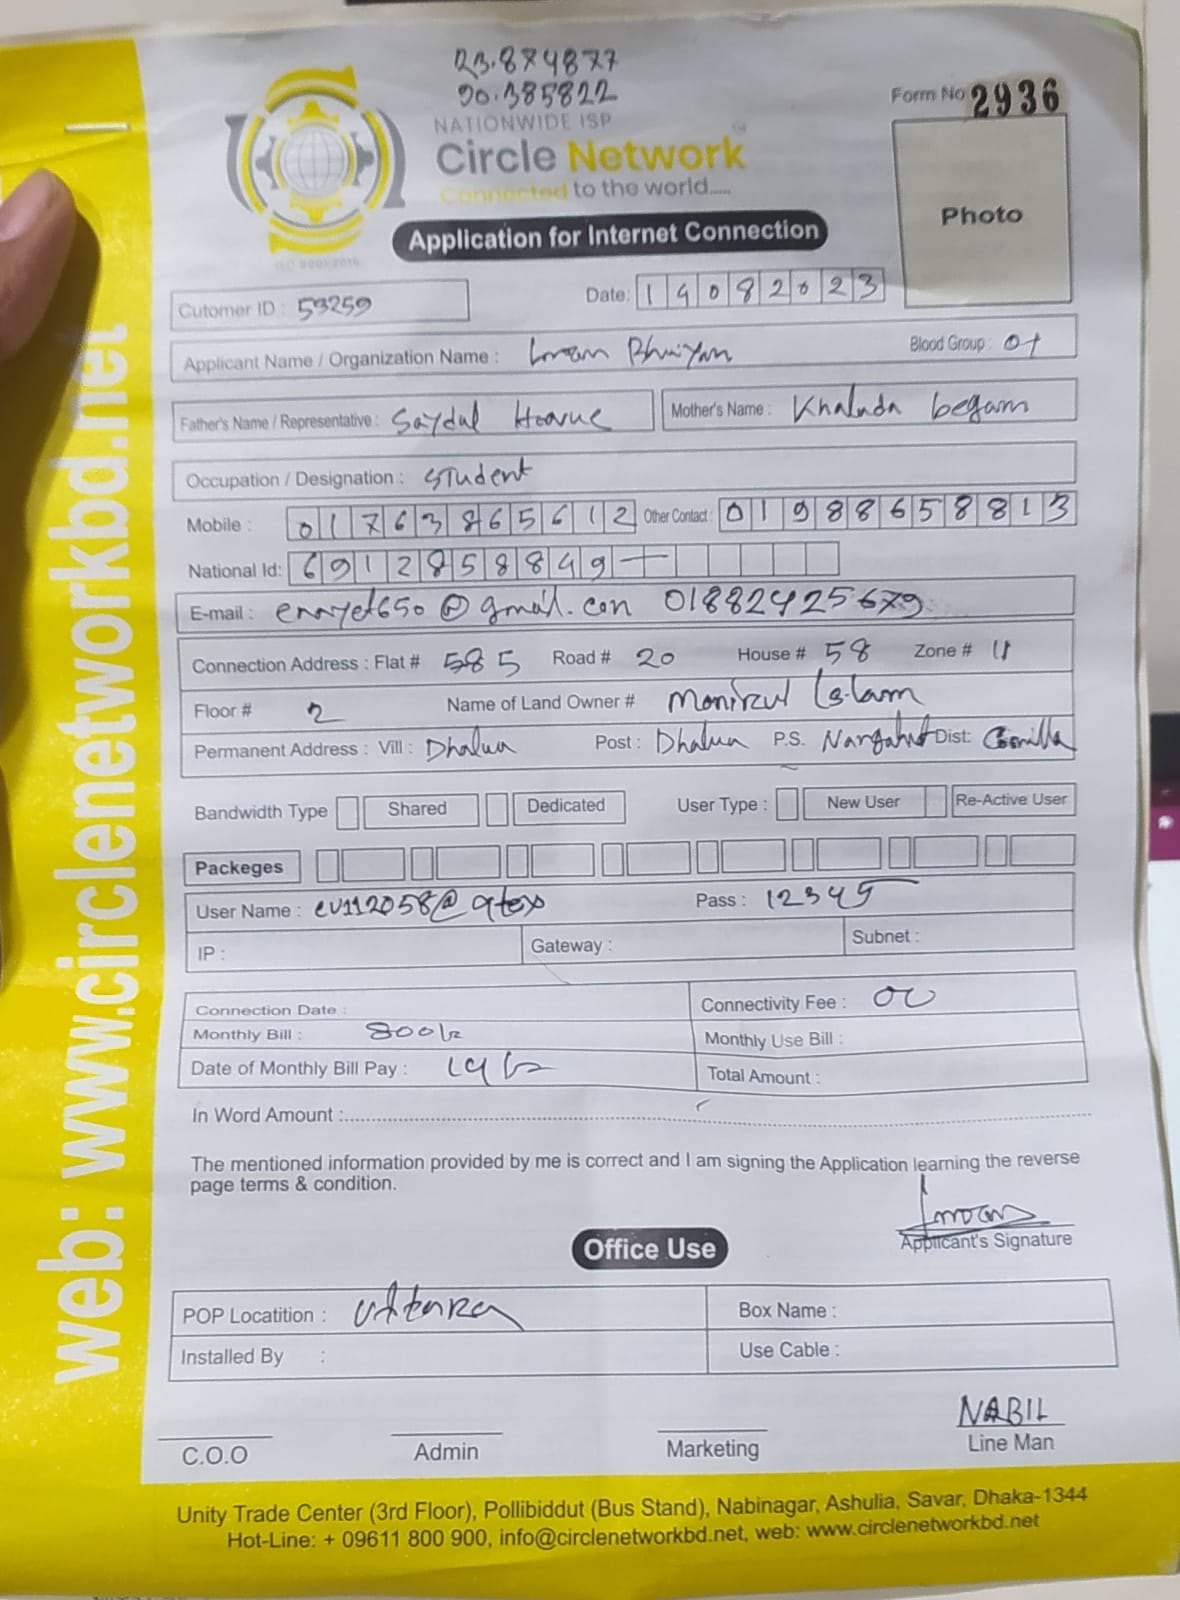 23.874877
90.385822
NATIONWIDE ISP
Circle Network
Connected to the world.....
Form No 2936
Photo
Application for Internet Connection
ISO 9001:2015
Cutomer ID : 53259
Date: 14082023
Applicant Name / Organization Name : Imran Bhuiyan Blood Group : O+
Father's Name / Representative : Saydul Hoque Mother's Name : Khaluda begam
Occupation / Designation : Student
Mobile : 01763865612 Other Contact : 01988658813
National Id: 6912858849
E-mail : enayet650@gmail.con 01882425679
Connection Address : Flat # 585 Road # 20 House # 58 Zone # 11
Floor # 2 Name of Land Owner # Monirul Islam
Permanent Address : Vill : Dhalua Post : Dhalua P.S. Dist: Comilla
Bandwidth Type Shared Dedicated User Type : New User Re-Active User
Packeges
User Name : Pass : 12345
IP : Gateway : Subnet :
Connection Date : Connectivity Fee : 00
Monthly Bill : 800 Monthly Use Bill :
Date of Monthly Bill Pay : Total Amount :
In Word Amount :
The mentioned information provided by me is correct and I am signing the Application learning the reverse
page terms & condition.
Imran
Applicant's Signature
Office Use
POP Locatition : uttara Box Name :
Installed By : Use Cable :
NABIL
C.O.O Admin Marketing Line Man
Unity Trade Center (3rd Floor), Pollibiddut (Bus Stand), Nabinagar, Ashulia, Savar, Dhaka-1344
Hot-Line: + 09611 800 900, info@circlenetworkbd.net, web: www.circlenetworkbd.net
web: www.circlenetworkbd.net